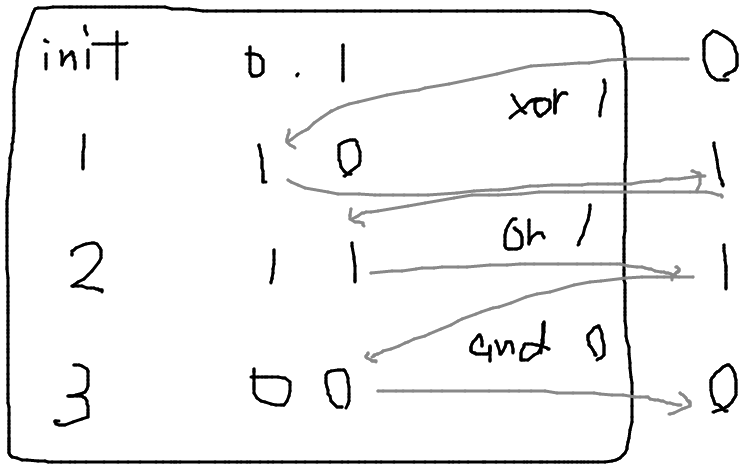 init 0 . 1 0
xor 1
1 1 0 1
or 1
2 1 1 1
and 0
3 0 0 0